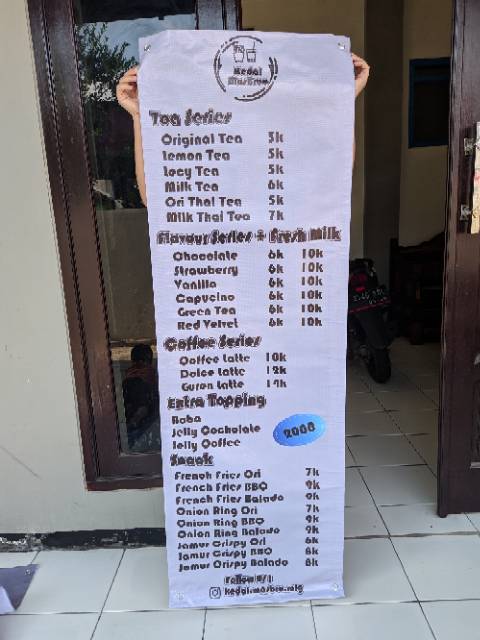 Kedai
MasBree
Tea Series
Original Tea 3k
Lemon Tea 5k
Lecy Tea 5k
Milk Tea 6k
Ori Thai Tea 5k
Milk Thai Tea 7k
Flavour Series + Fresh Milk
Chocolate 6k 10k
Strawberry 6k 10k
Vanilla 6k 10k
Capucino 6k 10k
Green Tea 6k 10k
Red Velvet 6k 10k
Coffee Series
Coffee Latte 10k
Dolce Latte 12k
Guren Latte 14k
Extra Topping
Boba
Jelly Cocholate
Jelly Coffee
2000
Snack
French Fries Ori 7k
French Fries BBQ 9k
French Fries Balado 9k
Onion Ring Ori 7k
Onion Ring BBQ 9k
Onion Ring Balado 9k
Jamur Crispy Ori 6k
Jamur Crispy BBQ 8k
Jamur Crispy Balado 8k
Follow US!